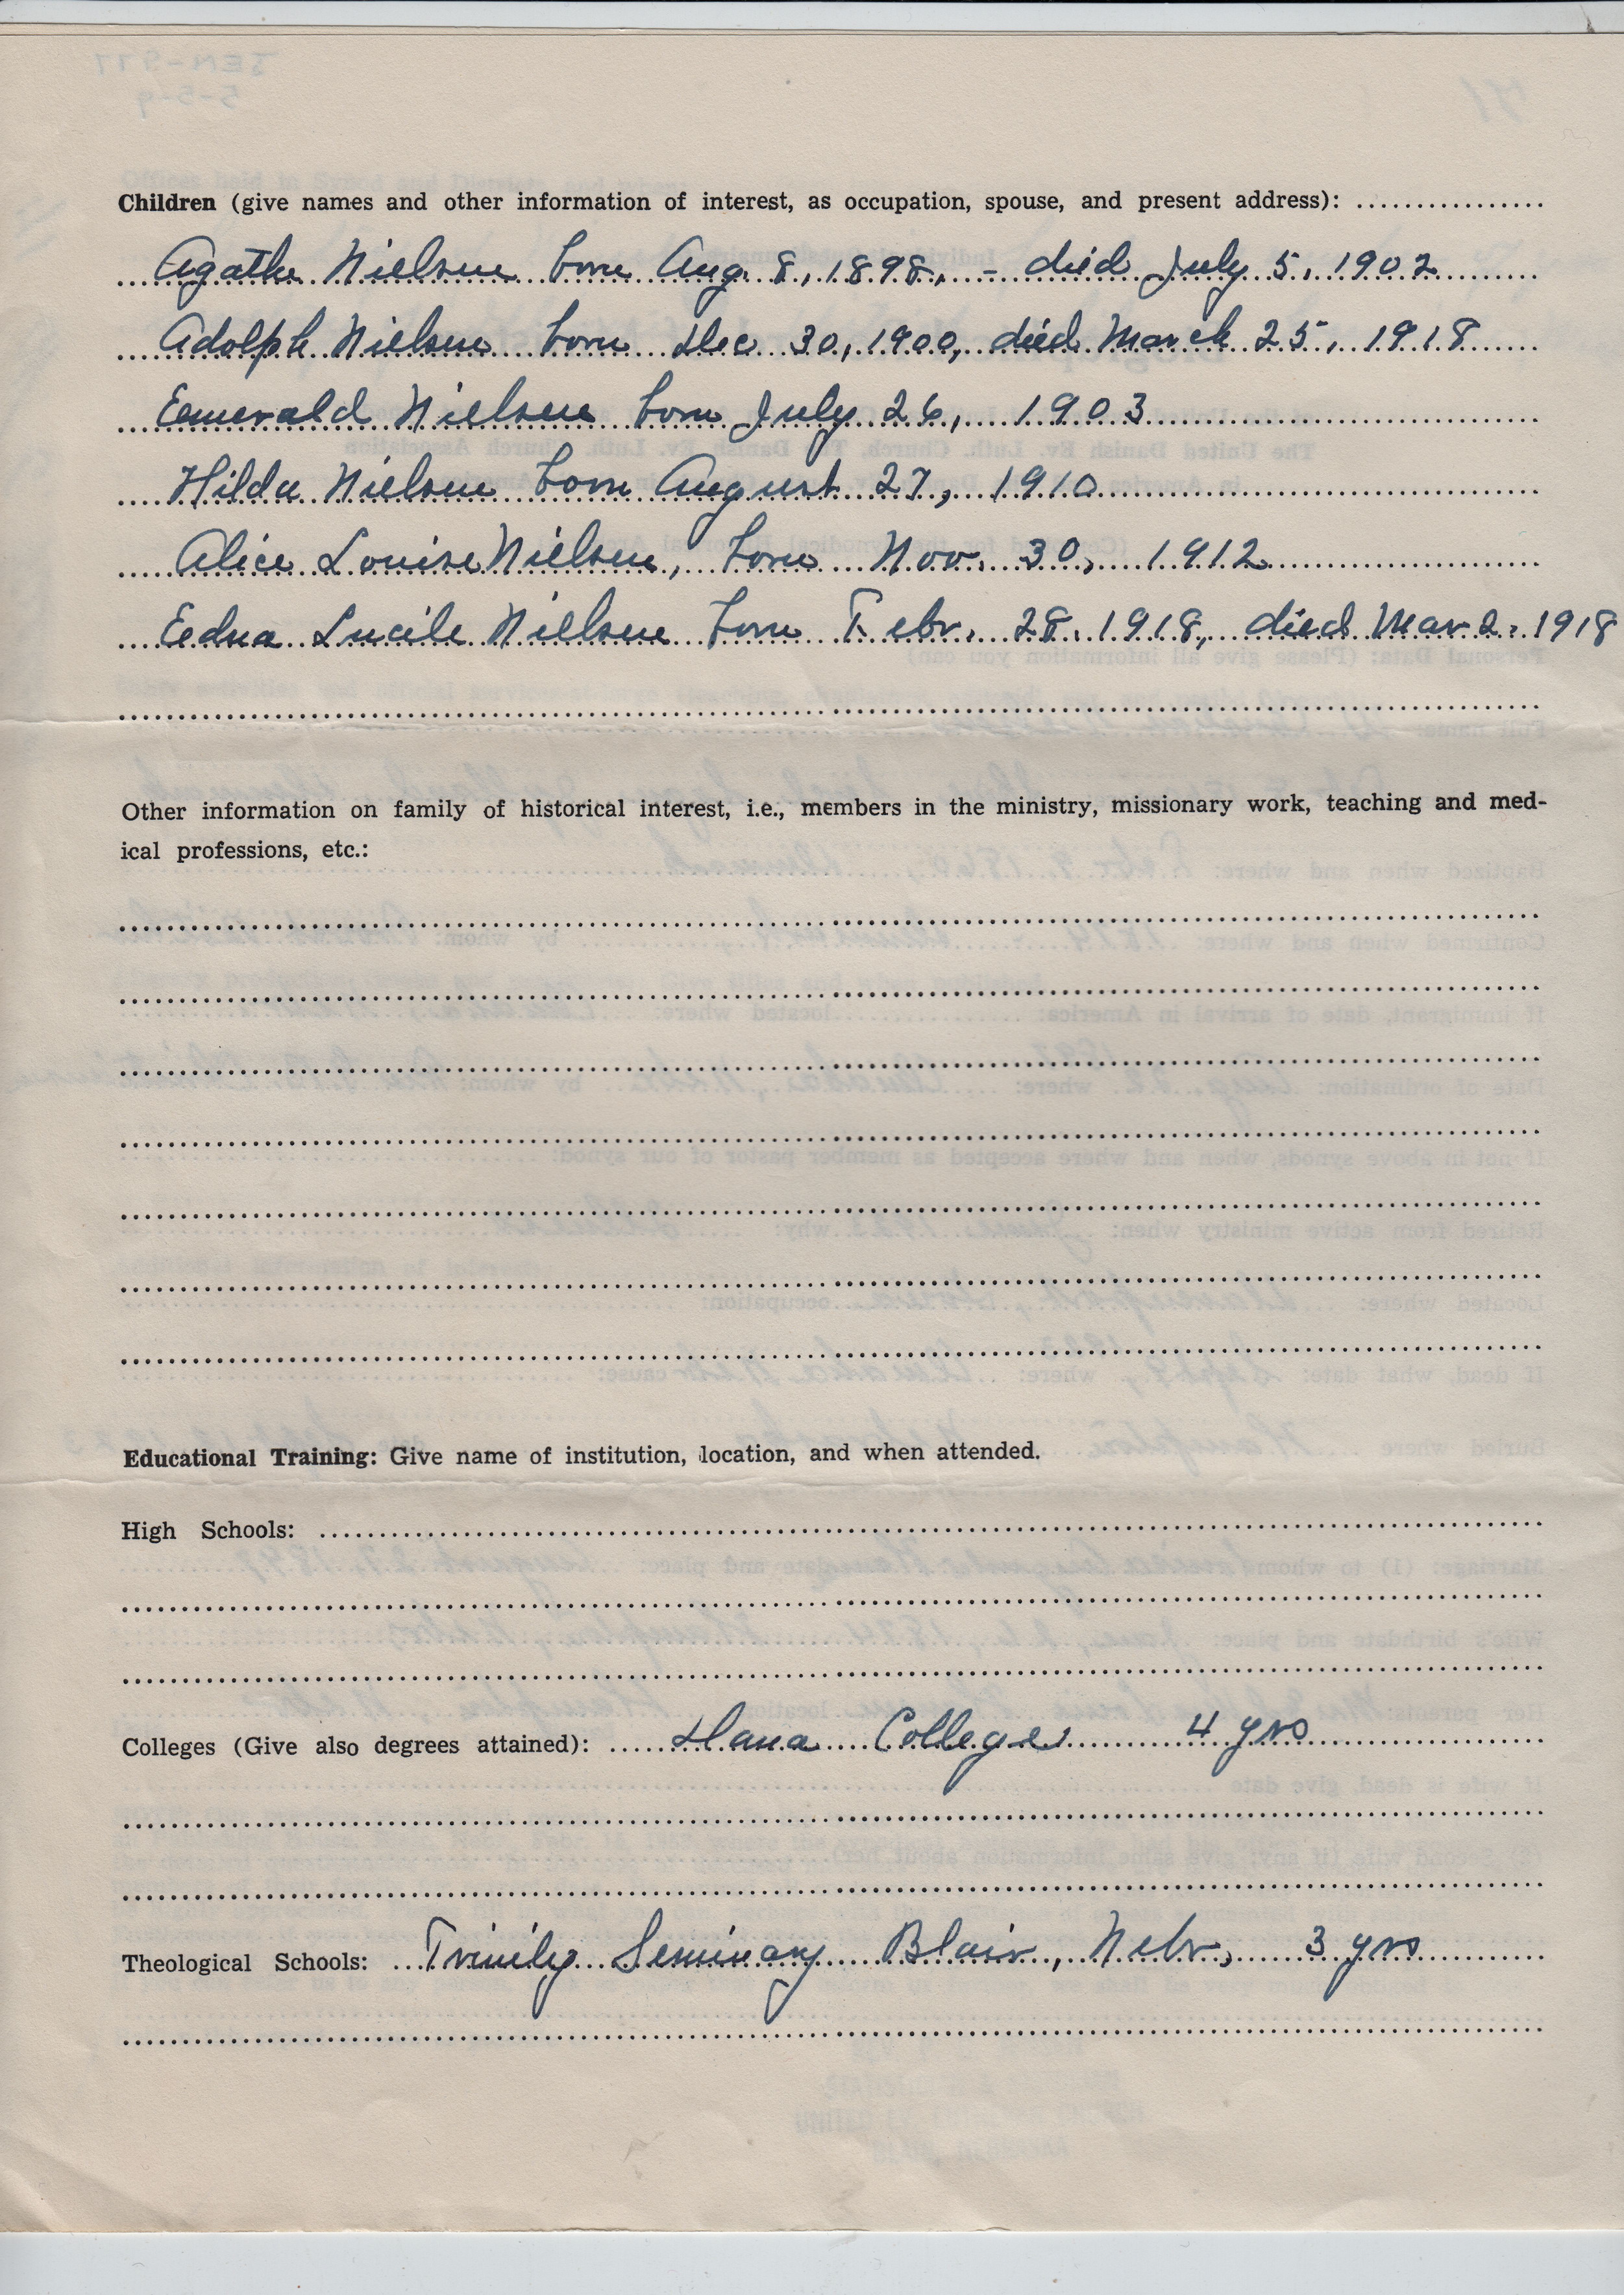 Children (give names and other information of interest, as occupation, spouse, and present address):
Agathe Nielsen born Aug. 8, 1898, - died July 5, 1902
Adolph Nielsen born Dec 30, 1900, died March 25, 1918
Esmerald Nielsen born July 26, 1903
Hilda Nielsen born August 27, 1910
Alice Louise Nielsen, born Nov. 30, 1912
Eedna Lucile Nielsen born Febr. 28, 1918, died Mar 2, 1918
Other information on family of historical interest, i.e., members in the ministry, missionary work, teaching and med-
ical professions, etc.:
Educational Training: Give name of institution, location, and when attended.
High Schools:
Colleges (Give also degrees attained): Dana College 4 yrs
Theological Schools: Trinity Seminary Blair, Nebr, 3 yrs